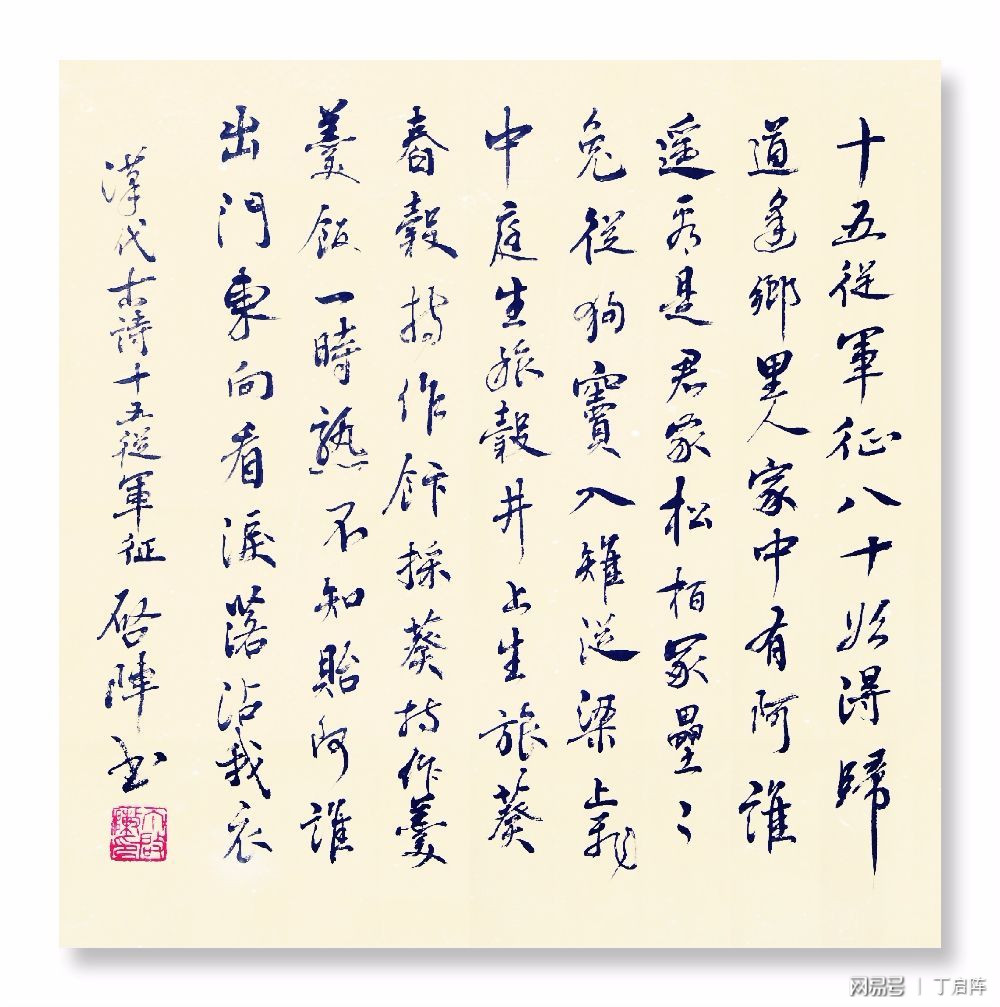 十五從軍征八十始得歸
道逢鄉里人家中有阿誰
遥看是君家松柏冢壘〻
兔從狗竇入雉從梁上飛
中庭生旅穀井上生旅葵
舂穀持作飰採葵持作羹
羹飯一時熟不知貽阿誰
出門東向看淚落沾我衣
漢代古詩十五從軍征 啓陣书
丁啟陣印
网易号 | 丁启阵